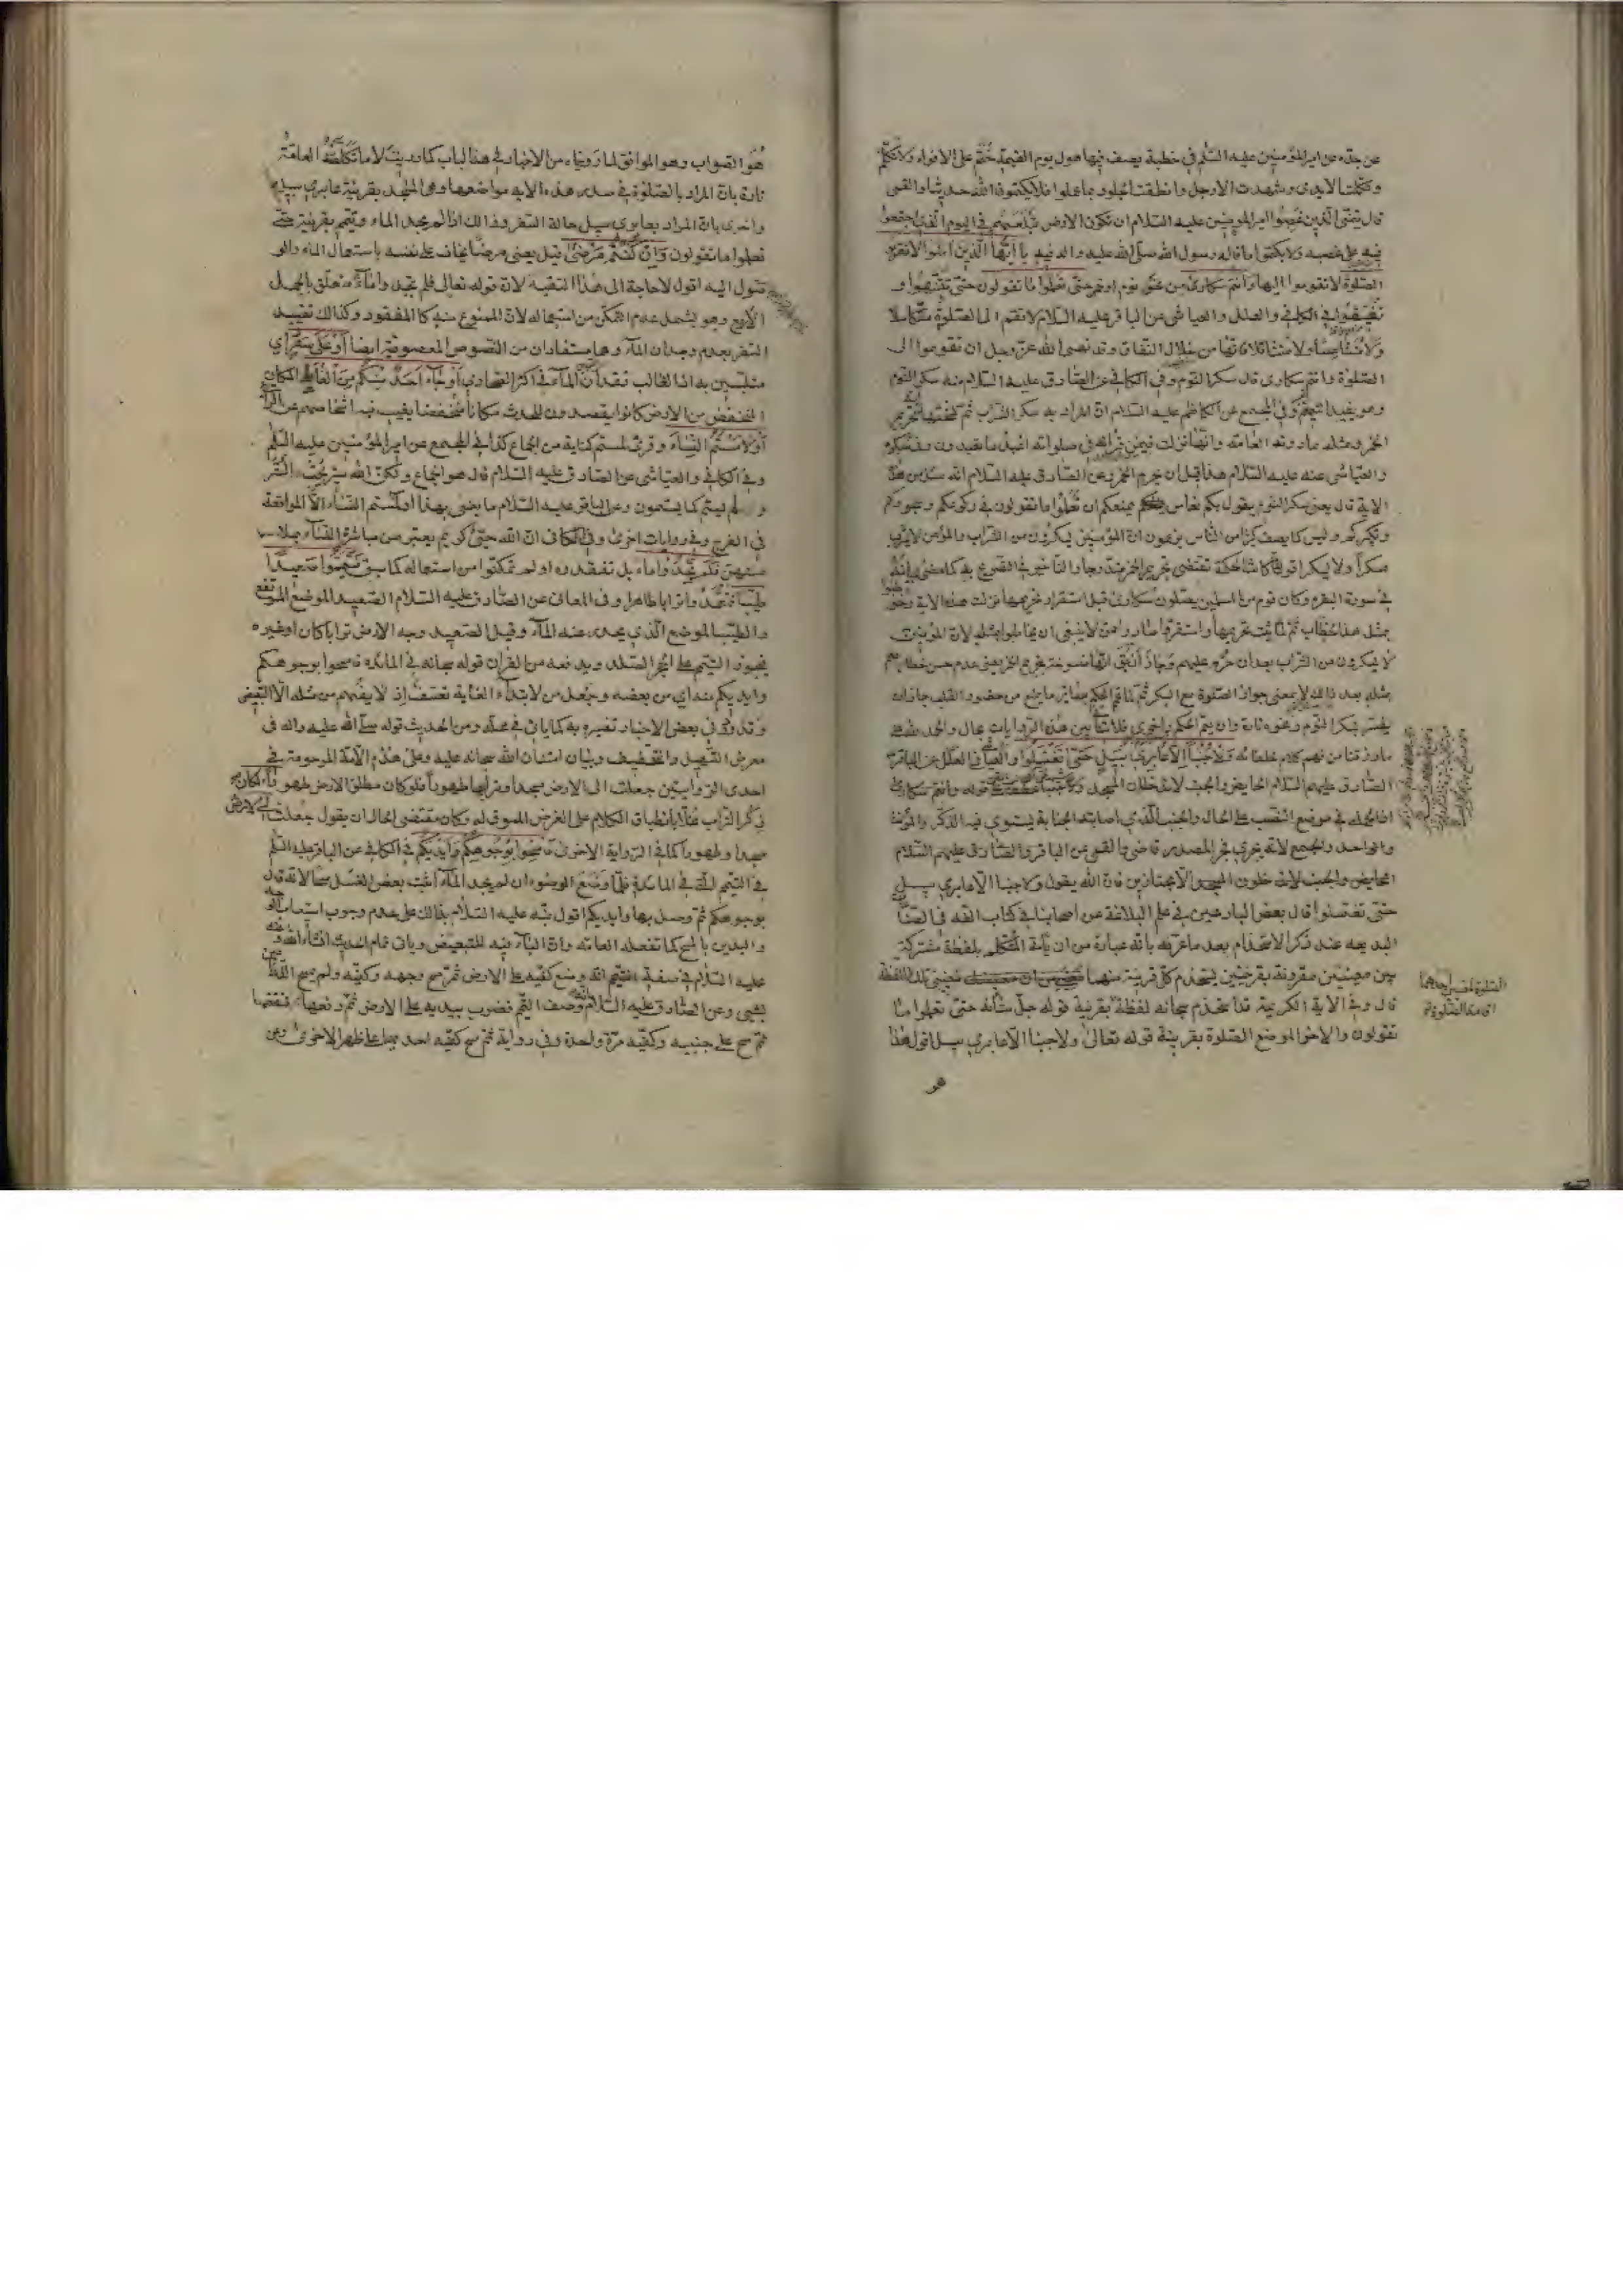 عن جده عن امير المؤمنين عليه السلم في خطبة يصف فيها هول يوم القيمة ختم على الافواه فلا تكلم
وتكلمت الايدى وشهدت الارجل وانطقت الجلود بما عملوا فلا يكتمون الله حديثا والقمى
قال يتمنى الذين غصبوا امير المؤمنين عليه السلام ان تكون الارض تبلعهم في اليوم الذي اجتمعوا
فيه على غصبه ولا يكتموا ما قاله رسول الله صلى الله عليه واله فيه يا ايها الذين امنوا لا تقربوا
الصلوة لا تقوموا اليها وانتم سكارى من نحو نوم او خمر حتى تعلموا ما تقولون حتى تنتبهوا و
تفيقوا في الكافي والعلل والعياشى عن الباقر عليه السلام لا تقم الى الصلوة متكاسلا
ولا متناعسا ولا متثاقلا فانها من خلال النفاق وقد نهى الله عز وجل ان تقوموا الى
الصلوة وانتم سكارى قال سكر النوم وفي الكافي عن الصادق عليه السلام منه سكر النوم
وهو يفيد التعميم وفي المجمع عن الكاظم عليه السلام ان المراد به سكر الشراب ثم نسختها تحريم
الخمر ومثله ما روته العامة وانها نزلت فيمن قرأ في صلوته اعبد ما تعبدون في سكره
والعياشى عنه عليه السلام هذا قبل ان يحرم الخمر وعن الصادق عليه السلام انه سئل عن هذه
الاية قال يعنى سكر النوم يقول بكم نعاس يمنعكم ان تعلموا ما تقولون في ركوعكم وسجودكم
وتكبيركم وليس كما يصف كثير من الناس يزعمون ان المؤمنين يسكرون من الشراب والمؤمن لا يشرب
مسكرا ولا يسكر اقول لما كانت الحكمة تقتضى تحريم الخمر متدرجا والتاخير في التصريح به كما مضى بيانه
في سورة البقره وكان قوم من المسلمين يصلون سكارى قبل استقرار تحريمها نزلت هذه الاية وخوطبوا
بمثل هذا الخطاب ثم لما ثبت تحريمها واستقر وصاروا ممن لا ينبغى ان يخاطبوا بمثله لان المؤمنين
لا يسكرون من الشراب بعد ان حرم عليهم جاز ان يقال انها منسوخة بتحريم الخمر يعنى عدم حسن خطابهم
بمثله بعد ذلك لا بمعنى جواز الصلوة مع السكر ثم لما عم الحكم سائر ما يمنع من حضور القلب جاز ان
يفسر بسكر النوم ونحوه تارة وان يعم الحكم اخرى فلا تنافي بين هذه الروايات بحال والحمد لله على
ما رزقنا من فهم كلام خلفائه ولا جنبا الا عابري سبيل حتى تغتسلوا والعياشى في العلل عن الباقر و
الصادق عليهما السلام الحايض والجنب لا يدخلان المسجد قوله وانتم سكارى
اذ الجملة في موضع النصب على الحال والجنب الذي اصابته الجنابة يستوي فيه الذكر والمؤنث
والواحد والجمع لانه يجري مجرى المصدر العياشى والقمى عن الباقر والصادق عليهم السلام
الحايض والجنب لا يدخلون المسجد الا مجتازين فان الله يقول ولا جنبا الا عابري سبيل
حتى تغتسلوا قال بعض البارعين في علم البلاغة من اصحابنا في كتاب الفه في الصناعات
البديعه عند ذكر الاستخدام بعد ما عرفه بانه عبارة من ان ياتى المتكلم بلفظة مشتركة
بين معنيين مقرونة بقرينتين يستخدم كل قرينة منهما معنى من تلك اللفظة
قال وفي الاية الكريمة قد استخدم سبحانه لفظة بقرينة قوله جل شأنه حتى تعلموا ما
تقولون والاخر موضع الصلوة بقرينة قوله تعالى ولا جنبا الا عابري سبيل اقول هذا
هو
الصلوة لمعنيين احدهما
اقامة الصلوة
هو الصواب وهو الموافق لما رويناه من الاخبار في هذا الباب كما دريت لا ما تكلفه العامة
تارة بان المراد بالصلوة في صدر هذه الاية مواضعها وهي المسجد بقرينة عابري سبيل
واخرى بان المراد بعابري سبيل حالة السفر وذلك اذا لم يجد الماء وتيمم بقرينة حتى
تعلموا ما تقولون وان كنتم مرضى قيل يعنى مرضا يخاف على نفسه باستعمال الماء والو
صول اليه اقول لا حاجة الى هذا التقييد لان قوله تعالى فلم تجدوا ماء متعلق بالجمل
الاربع وهو يشمل عدم التمكن من استعماله لان الممنوع منه كالمفقود وكذلك تقييد
السفر بعدم وجدان الماء وهما يستفادان من النصوص المعصومية ايضا او على سفر اي
متلبسين به اذ الغالب فقدان الماء في اكثر الصحارى او جاء احد منكم من الغائط المكان
المنخفض من الارض كانوا يقصدون للحدث مكانا منخفضا يغيب فيه اشخاصهم عن الرائى
او لامستم النساء وقرئ لمستم كناية من الجماع كذا في المجمع عن امير المؤمنين عليه السلم
وفي الكافي والعياشى عن الصادق عليه السلام قال هو الجماع ولكن الله ستير يحب الستر
ولم يسم كما يسمون وعن الباقر عليه السلام ما يعنى بهذا او لمستم النساء الا المواقعة
في الفرج وفي روايات اخرى وفي الكافي ان الله حيى كريم يعبر عن مباشرة النساء بملا
مستهن فلم تجدوا ماء بان تفقدوه او لم تمكنوا من استعماله كما سبق فتيمموا صعيدا
طيبا فتعمدوا ترابا طاهرا وفي المعانى عن الصادق عليه السلام الصعيد الموضع المرتفع
والطيب الموضع الذي ينحدر عنه الماء وقيل الصعيد وجه الارض ترابا كان او غيره
فيجوز التيمم على الحجر الصلد ويدفعه من القران قوله سبحانه في المائده فامسحوا بوجوهكم
وايديكم منه اي من بعضه وجعل من لابتداء الغاية تعسف اذ لا يفهم من مثله الا التبعيض
وقد ورد في بعض الاخبار تفسيره به كما ياتى في محله ومن الحديث قوله صلى الله عليه واله في
معرض التسهيل والتخفيف وبيان امتنان الله سبحانه عليه وعلى هذه الامة المرحومة في
احدى الروايتين جعلت لى الارض مسجدا وترابها طهورا فلو كان مطلق الارض طهورا لكان
ذكر التراب مخلا بانطباق الكلام على الغرض المسوق له وكان مقتضى الحال ان يقول جعلت لى الارض
مسجدا وطهورا كما في الرواية الاخرى فامسحوا بوجوهكم وايديكم في الكافي عن الباقر عليه السلم
في التيمم الذي في المائدة فلما وضع الوضوء ان لم يجد الماء اثبت بعض الغسل مسحا لانه قال
بوجوهكم ثم وصل بها وايديكم اقول نبه عليه السلام بذلك على عدم وجوب استيعاب الوجه
واليدين بالمسح كما تفعله العامه وان الباء فيه للتبعيض وياتى تمام الحديث انشاء الله وعنه
عليه السلام في صفة التيمم انه وضع كفيه على الارض ثم مسح وجهه وكفيه ولم يمسح الذراعين
بشيئ وعن الصادق عليه السلام انه وصف التيمم فضرب بيديه على الارض ثم رفعهما فنفضهما
ثم مسح على جبينيه وكفيه مرة واحدة وفي رواية ثم مسح كفيه احديهما على ظهر الاخرى وعن